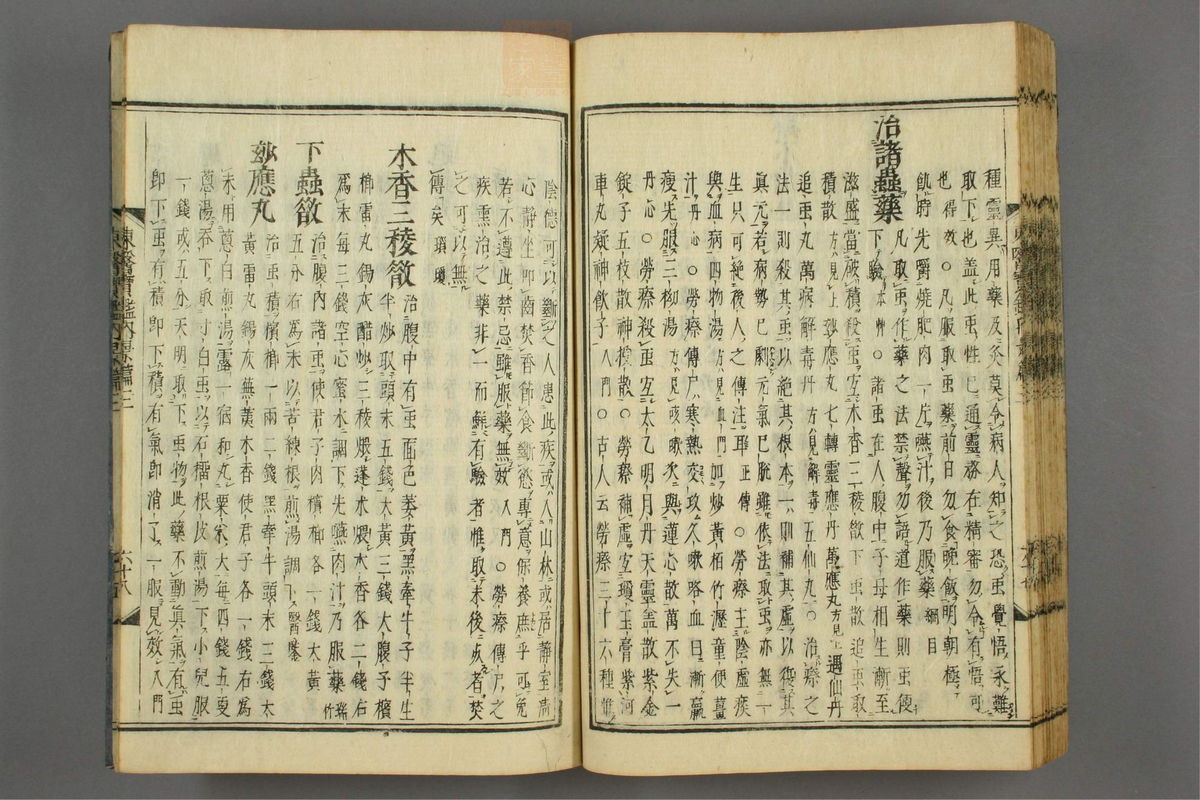 種靈異用藥及灸莫令病人知之恐虫覺悟永難
取下也盖此虫性已通靈務在精審勿令有悟可
也得效凡取虫藥前日勿食晚飯明朝極
飢時先嚼燒肥肉一片嚥汁後乃服藥綱目
治諸蟲藥
凡取虫作藥之法禁聲勿語道作藥則虫便
下驗本草諸虫在人腹中子母相生漸至
滋盛當破積殺虫宜木香三稜散下虫散追虫取
積散方見上玅應丸七轉靈應丹萬應丸方見上遇仙丹
追虫丸萬病解毒丹方見解毒五仙丸○治瘵之
法一則殺其虫以絶其根本一則補其虛以復其
眞元若病勢已劇元氣已脫雖依法取虫亦無一
生只可絶後人之傳注耳正傳○勞瘵主陰虛痰
與血病四物湯方見血門加炒黃栢竹瀝童便薑
汁丹心○勞瘵傳尸寒熱交攻久嗽咯血日漸羸
瘦先服三枴湯方見咳嗽次與蓮心散萬不失一
丹心○勞瘵殺虫宜太乙明月丹天靈盖散紫金
錠子五枝散神授散○勞瘵補虛宜瓊玉膏紫河
車丸凝神飮子入門○古人云勞瘵三十六種惟
陰德可以斷之人患此疾或入山林或居靜室淸
心靜坐叩齒焚香節食斷慾專意保養庶乎可免
若不遵此禁忌雖服藥無效入門○勞瘵傳尸之
疾熏治之藥非一而鮮有驗者惟取末後灸者焚
之可以無
傳矣瑣瓊
木香三稜散
治腹中有虫面色萎黃黑牽牛子半生
半炒取頭末五錢大黃三錢大腹子檳
榔雷丸錫灰醋炒三稜煨蓬朮煨木香各二錢右
爲末每三錢空心蜜水調下先嚥肉汁乃服藥瑞竹
下蟲散
治腹內諸虫使君子肉檳榔各一錢大黃
五分右爲末以苦練根煎湯調下醫鑑
玅應丸
治虫積檳榔一兩二錢黑牽牛頭末三錢大
黃雷丸錫灰蕪荑木香使君子各一錢右爲
末用葱白煎湯露一宿和丸粟米大每四錢五更
葱湯呑下取寸白虫以石榴根皮煎湯下小兒服
一錢或五分天明取下虫物此藥不動眞氣有虫
即下虫有積即下積有氣即消了一服見效入門
東醫寶鑑內景篇三
六十八